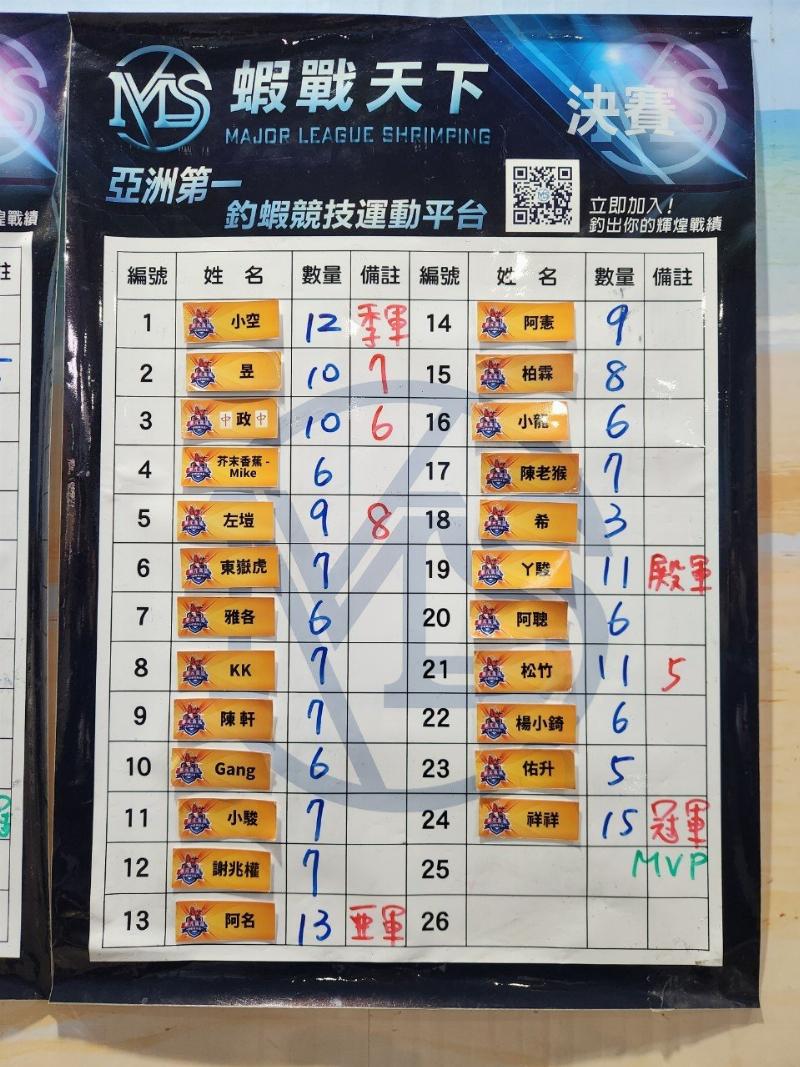 MLS
蝦戰天下
MAJOR LEAGUE SHRIMPING
決賽
亞洲第一
釣蝦競技運動平台
立即加入!
釣出你的輝煌戰績
編號 姓名 數量 備註 編號 姓名 數量 備註
1 小空 12 季軍 14 阿憲 9
2 昱 10 7 15 柏霖 8
3 中政中 10 6 16 小龍 6
4 芥末香蕉-
Mike 6 17 陳老猴 7
5 左塏 9 8 18 希 3
6 東嶽虎 7 19 丫駿 11 殿軍
7 雅各 6 20 阿聰 6
8 KK 7 21 松竹 11 5
9 陳軒 7 22 楊小錡 6
10 Gang 6 23 佑升 5
11 小駿 7 24 祥祥 15 冠軍
12 謝兆權 7 25 MVP
13 阿名 13 亜軍 26